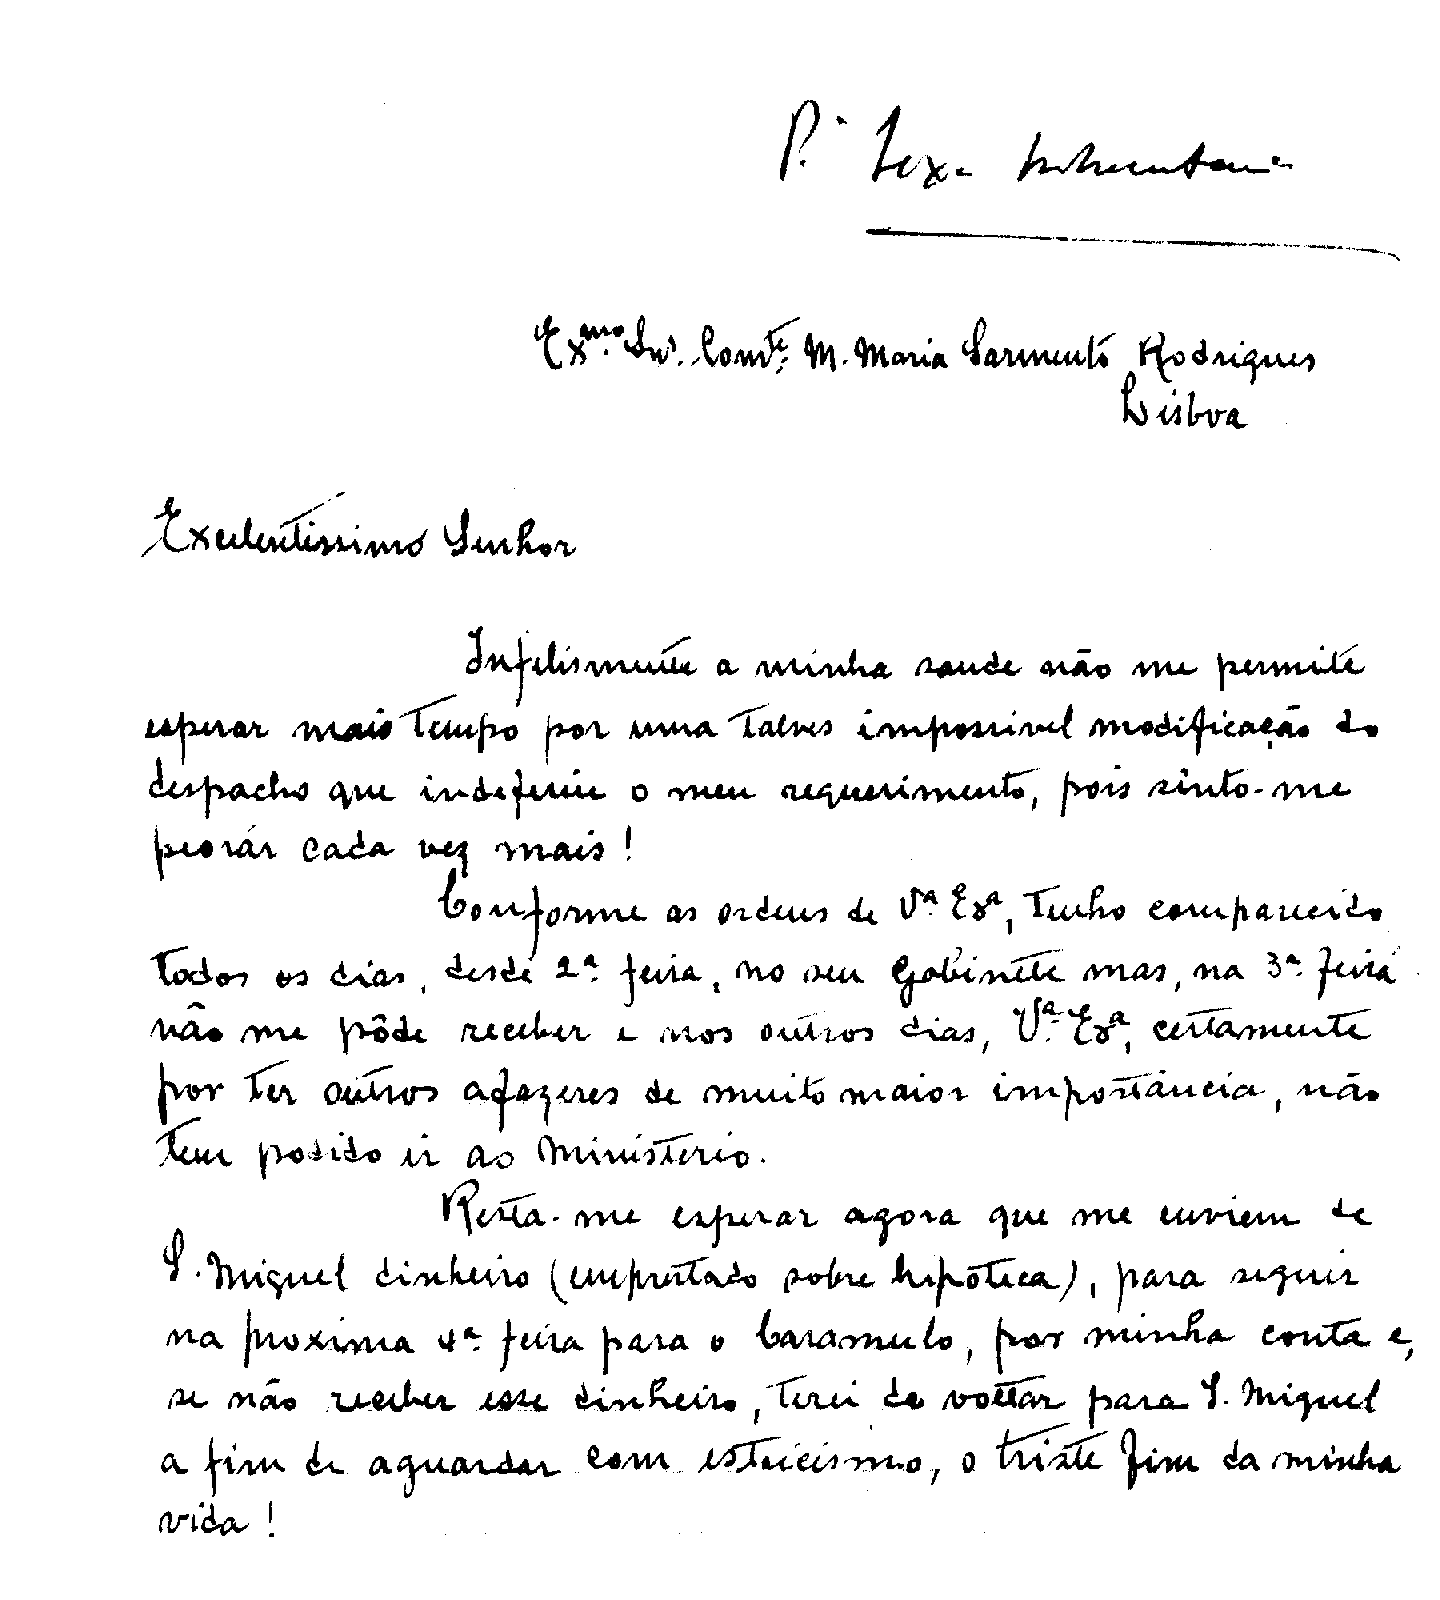 Exmo. Snr. Comte. M. Maria Sarmento Rodrigues
Lisboa
Excelentissimo Senhor
Infelismente a minha saude não me permite
esperar mais tempo por uma talves impossivel modificação do
despacho que indeferiu o meu requerimento, pois sinto-me
piorar cada vez mais!
Conforme as ordens de Vª. Exª, tenho comparecido
todos os dias, desde 2ª. feira, no seu Gabinete mas, na 3ª. feira
não me pôde receber e nos outros dias, Vª. Exª, certamente
por ter outros afazeres de muito maior importância, não
tem podido ir ao Ministerio.
Resta-me esperar agora que me enviem de
S. Miguel dinheiro (emprestado sobre hipoteca), para seguir
na proxima 4ª. feira para o Caramulo, por minha conta e,
se não receber esse dinheiro, terei de voltar para S. Miguel
a fim de aguardar com estoicismo, o triste fim da minha
vida!